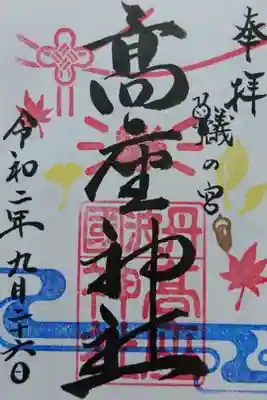 奉拝
蟻の宮
髙座神社
令和二年九月二十六日